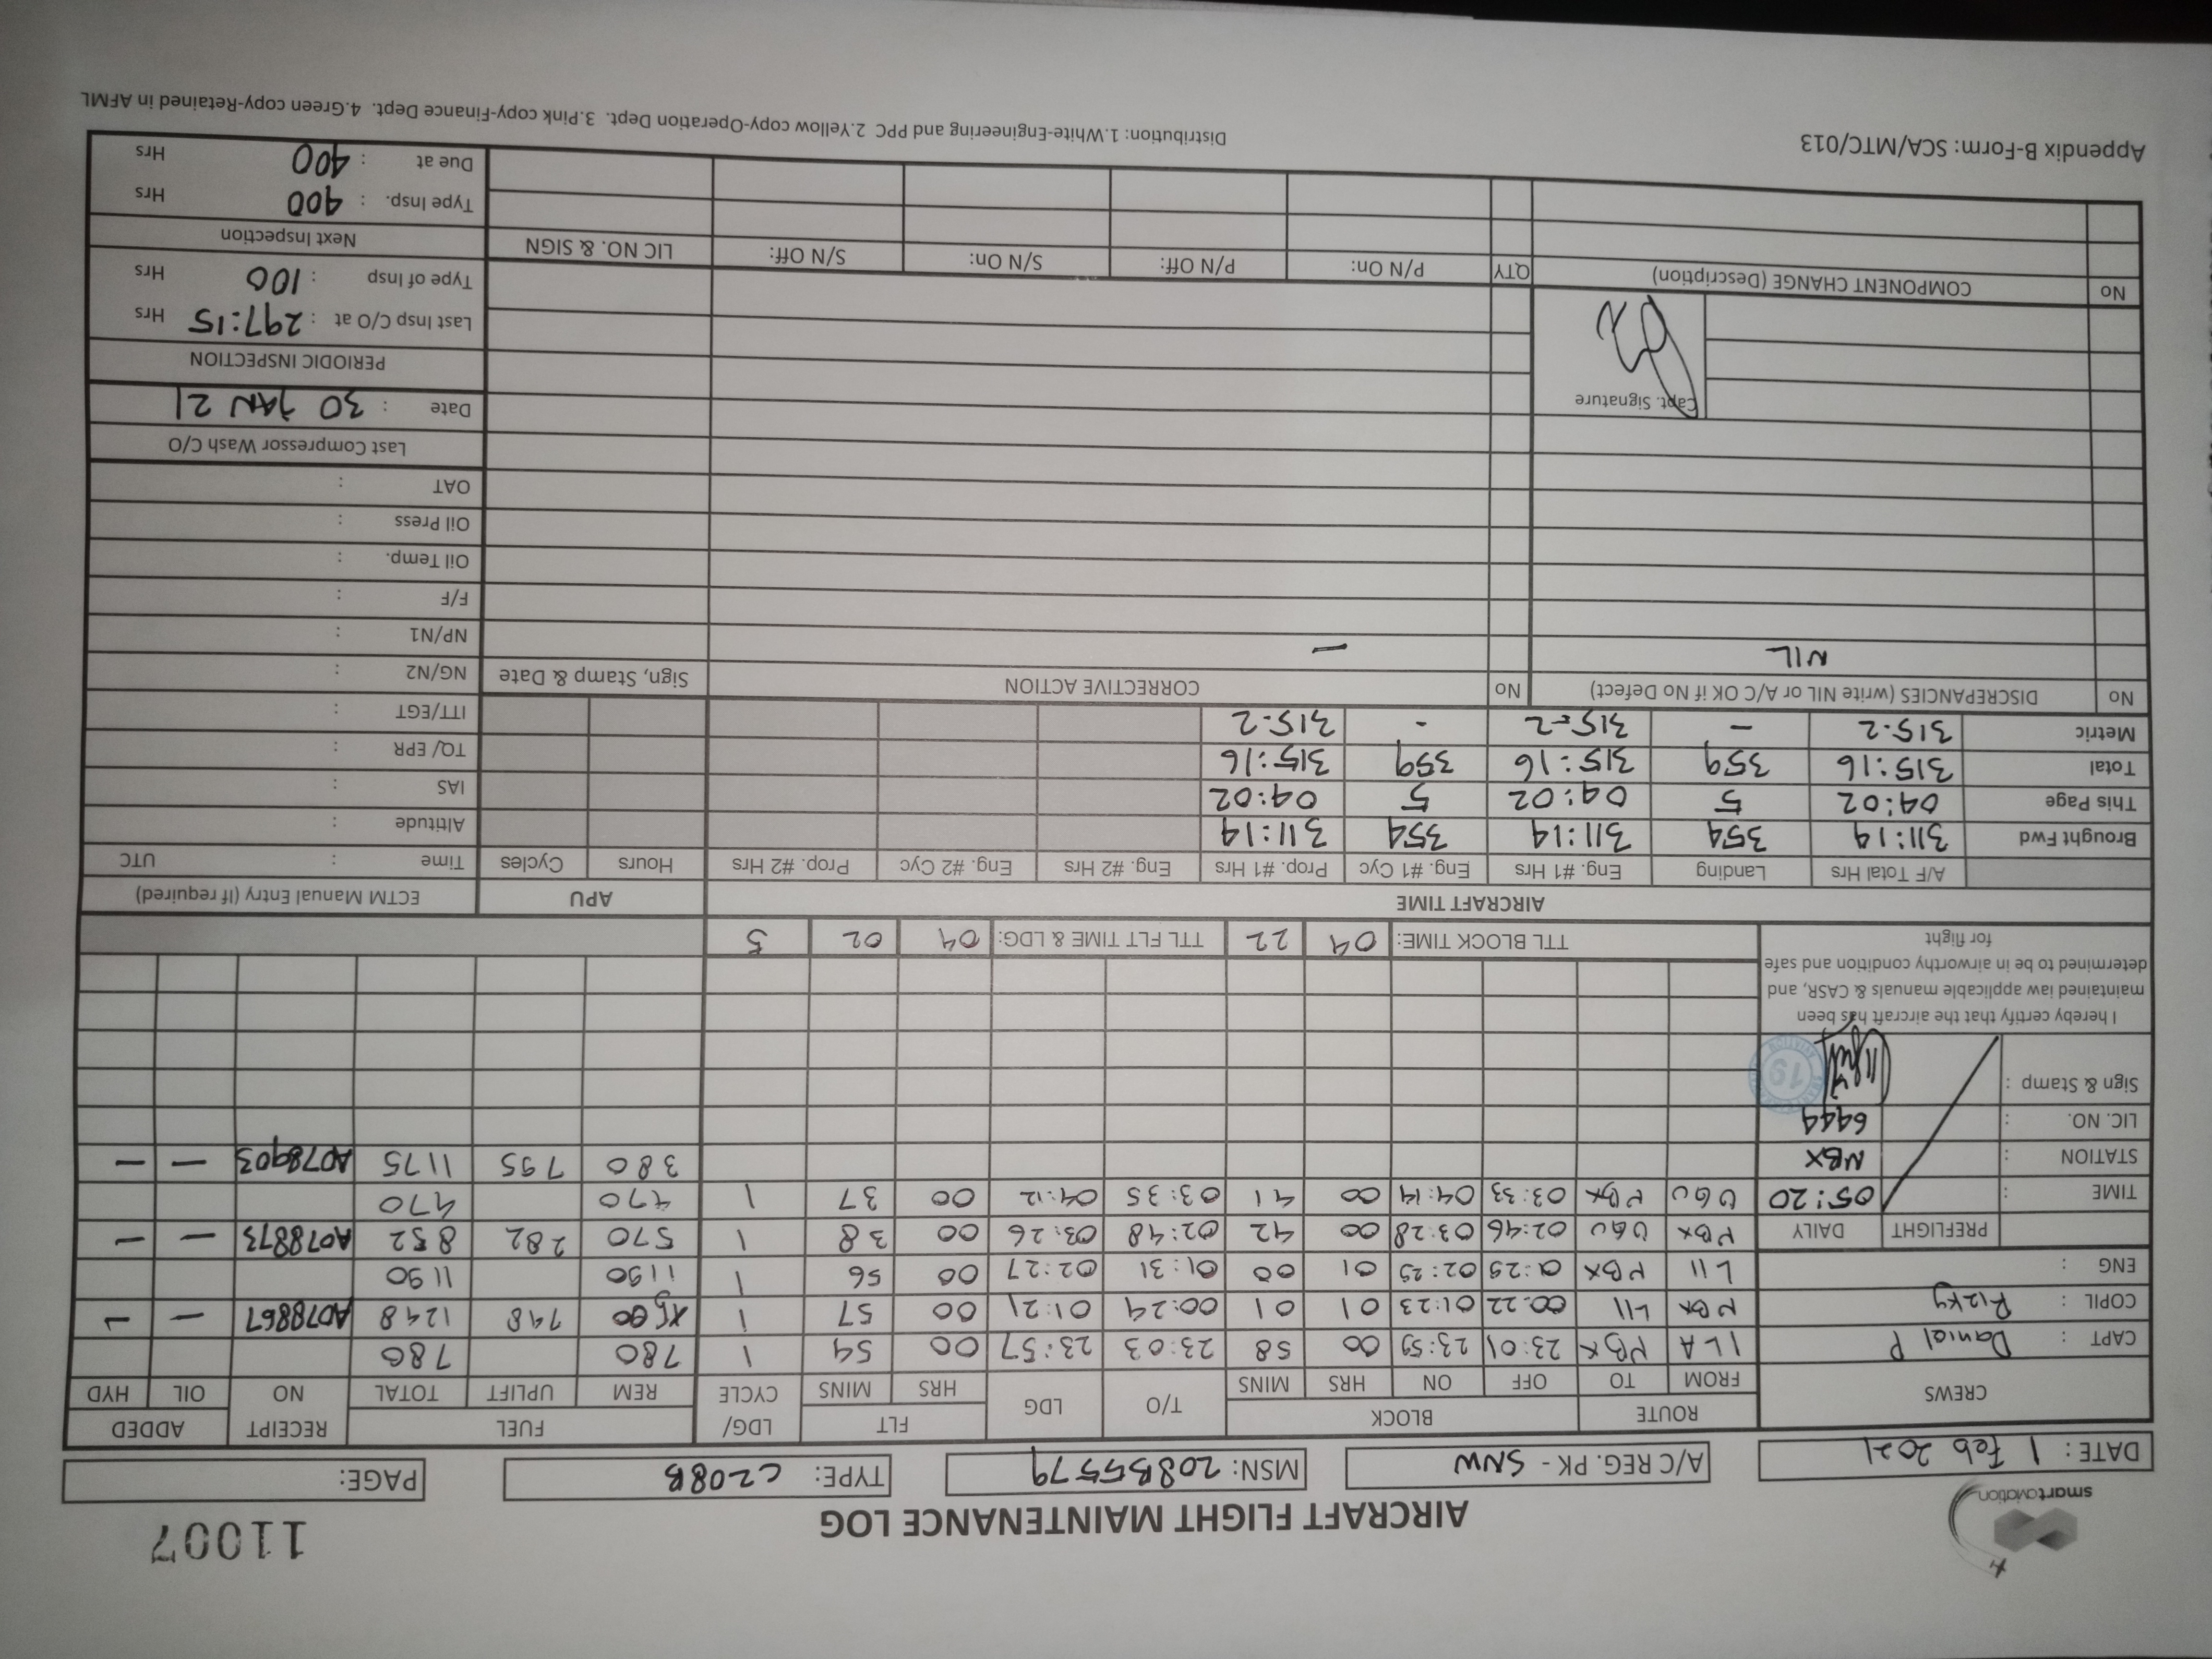 smartaviation
AIRCRAFT FLIGHT MAINTENANCE LOG
11007
DATE: 1 Feb 2021
A/C REG. PK - SNW
MSN: 208B5579
TYPE: C208B
PAGE:
CREWS ROUTE BLOCK T/O LDG FLT LDG/ CYCLE FUEL RECEIPT NO ADDED
FROM TO OFF ON HRS MINS HRS MINS REM UPLIFT TOTAL OIL HYD
CAPT : Daniel P ILA NBX 23:01 23:59 00 58 23:03 23:57 00 54 1 780 780
COPIL : Rizky NBX LII 00:22 01:23 01 01 00:24 01:21 00 57 1 500 748 1248 A078867 — —
ENG : LII NBX 01:29 02:29 01 00 01:31 02:27 00 56 1 1190 1190
PREFLIGHT DAILY NBX UGU 02:46 03:28 00 42 02:48 03:26 00 38 1 570 282 852 A078873 — —
TIME : 05:20 UGU NBX 03:33 04:14 00 41 03:35 04:12 00 37 1 470 470
STATION : NBX 380 795 1175 A078903 — —
LIC. NO. : 6444
Sign & Stamp : 19
I hereby certify that the aircraft has been
maintained iaw applicable manuals & CASR, and
determined to be in airworthy condition and safe
for flight
TTL BLOCK TIME: 04 22 TTL FLT TIME & LDG: 04 02 5
AIRCRAFT TIME APU ECTM Manual Entry (If required)
A/F Total Hrs Landing Eng. #1 Hrs Eng. #1 Cyc Prop. #1 Hrs Eng. #2 Hrs Eng. #2 Cyc Prop. #2 Hrs Hours Cycles Time : UTC
Brought Fwd 311:14 354 311:14 354 311:14 Altitude :
This Page 04:02 5 04:02 5 04:02 IAS :
Total 315:16 359 315:16 359 315:16 TQ/ EPR :
Metric 315.2 — 315.2 - 315.2 ITT/EGT :
No DISCREPANCIES (write NIL or A/C OK if No Defect) No CORRECTIVE ACTION Sign, Stamp & Date NG/N2 :
NIL — NP/N1 :
F/F :
Oil Temp. :
Oil Press :
OAT :
Last Compressor Wash C/O
Capt. Signature Date : 30 JAN 21
PERIODIC INSPECTION
Last Insp C/O at : 297:15 Hrs
Type of Insp : 100 Hrs
No COMPONENT CHANGE (Description) QTY P/N On: P/N Off: S/N On: S/N Off: LIC NO. & SIGN Next Inspection
Type Insp. : 400 Hrs
Due at : 400 Hrs
Appendix B-Form: SCA/MTC/013
Distribution: 1.White-Engineering and PPC 2.Yellow copy-Operation Dept. 3.Pink copy-Finance Dept. 4.Green copy-Retained in AFML